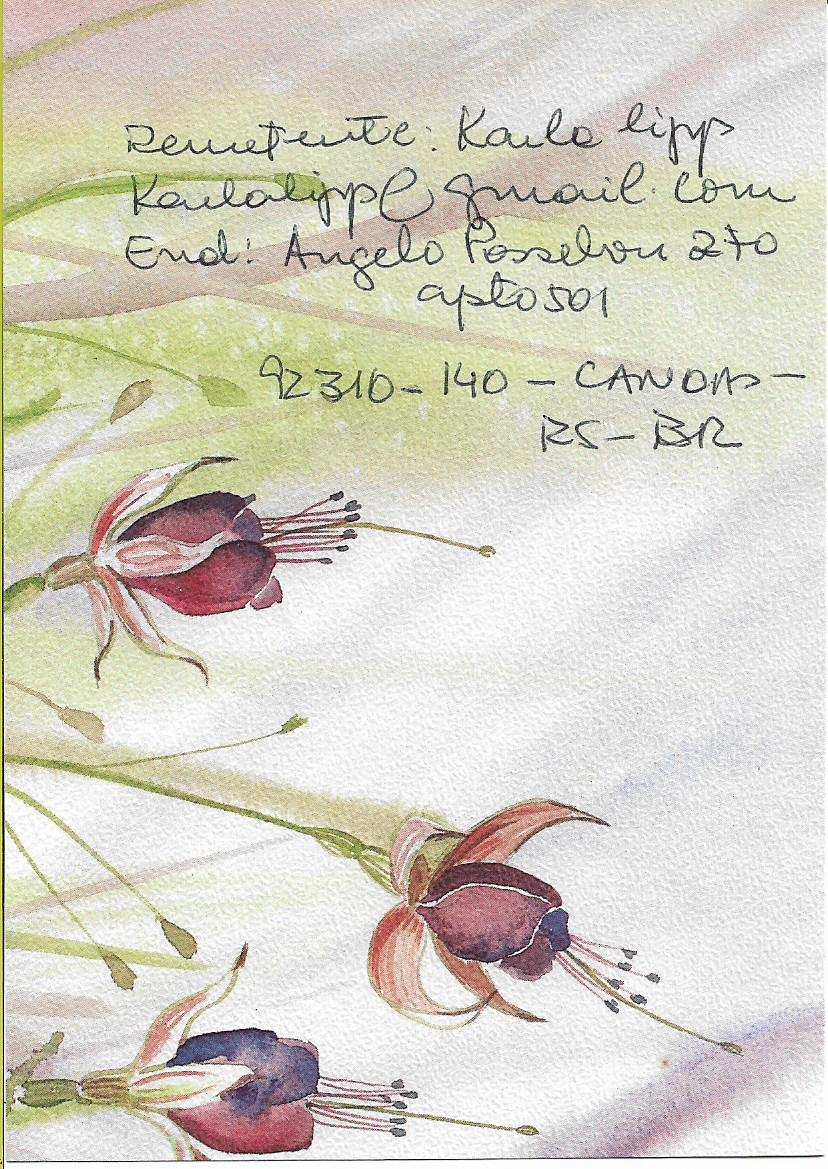 Remetente: Karla Lipp
Karlalipp@gmail.com
End: Angelo Possebon 270
apto 501
92310-140 - CANOAS -
RS - BR